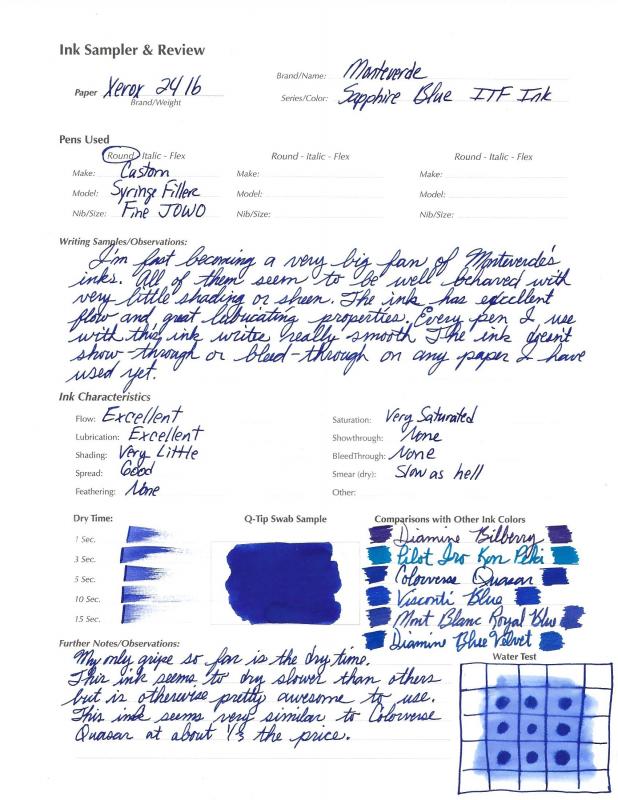 Ink Sampler & Review
Paper Xerox 24 lb
Brand/Weight
Brand/Name: Monteverde
Series/Color: Sapphire Blue ITF Ink
Pens Used
Round - Italic - Flex
Round - Italic - Flex
Round - Italic - Flex
Make: Custom
Make:
Make:
Model: Syringe Filler
Model:
Model:
Nib/Size: Fine JOWO
Nib/Size:
Nib/Size:
Writing Samples/Observations:
I'm fast becoming a very big fan of Monteverde's
inks. All of them seem to be well behaved with
very little shading or sheen. The ink has excellent
flow and great lubricating properties. Every pen I use
with this ink writes really smooth The ink doesn't
show-through or bleed-through on any paper I have
used yet.
Ink Characteristics
Flow: Excellent
Lubrication: Excellent
Shading: Very Little
Spread: Good
Feathering: None
Saturation: Very Saturated
Showthrough: None
BleedThrough: None
Smear (dry): Slow as hell
Other:
Dry Time:
1 Sec.
3 Sec.
5 Sec.
10 Sec.
15 Sec.
Q-Tip Swab Sample
Comparisons with Other Ink Colors
Diamine Bilberry
Pilot Iro Kon Peki
Colorverse Quasar
Visconti Blue
Mont Blanc Royal Blue
Diamine Blue Velvet
Further Notes/Observations:
My only gripe so far is the dry time.
This ink seems to dry slower than others
but is otherwise pretty awesome to use.
This ink seems very similar to Colorverse
Quasar at about 1/3 the price.
Water Test